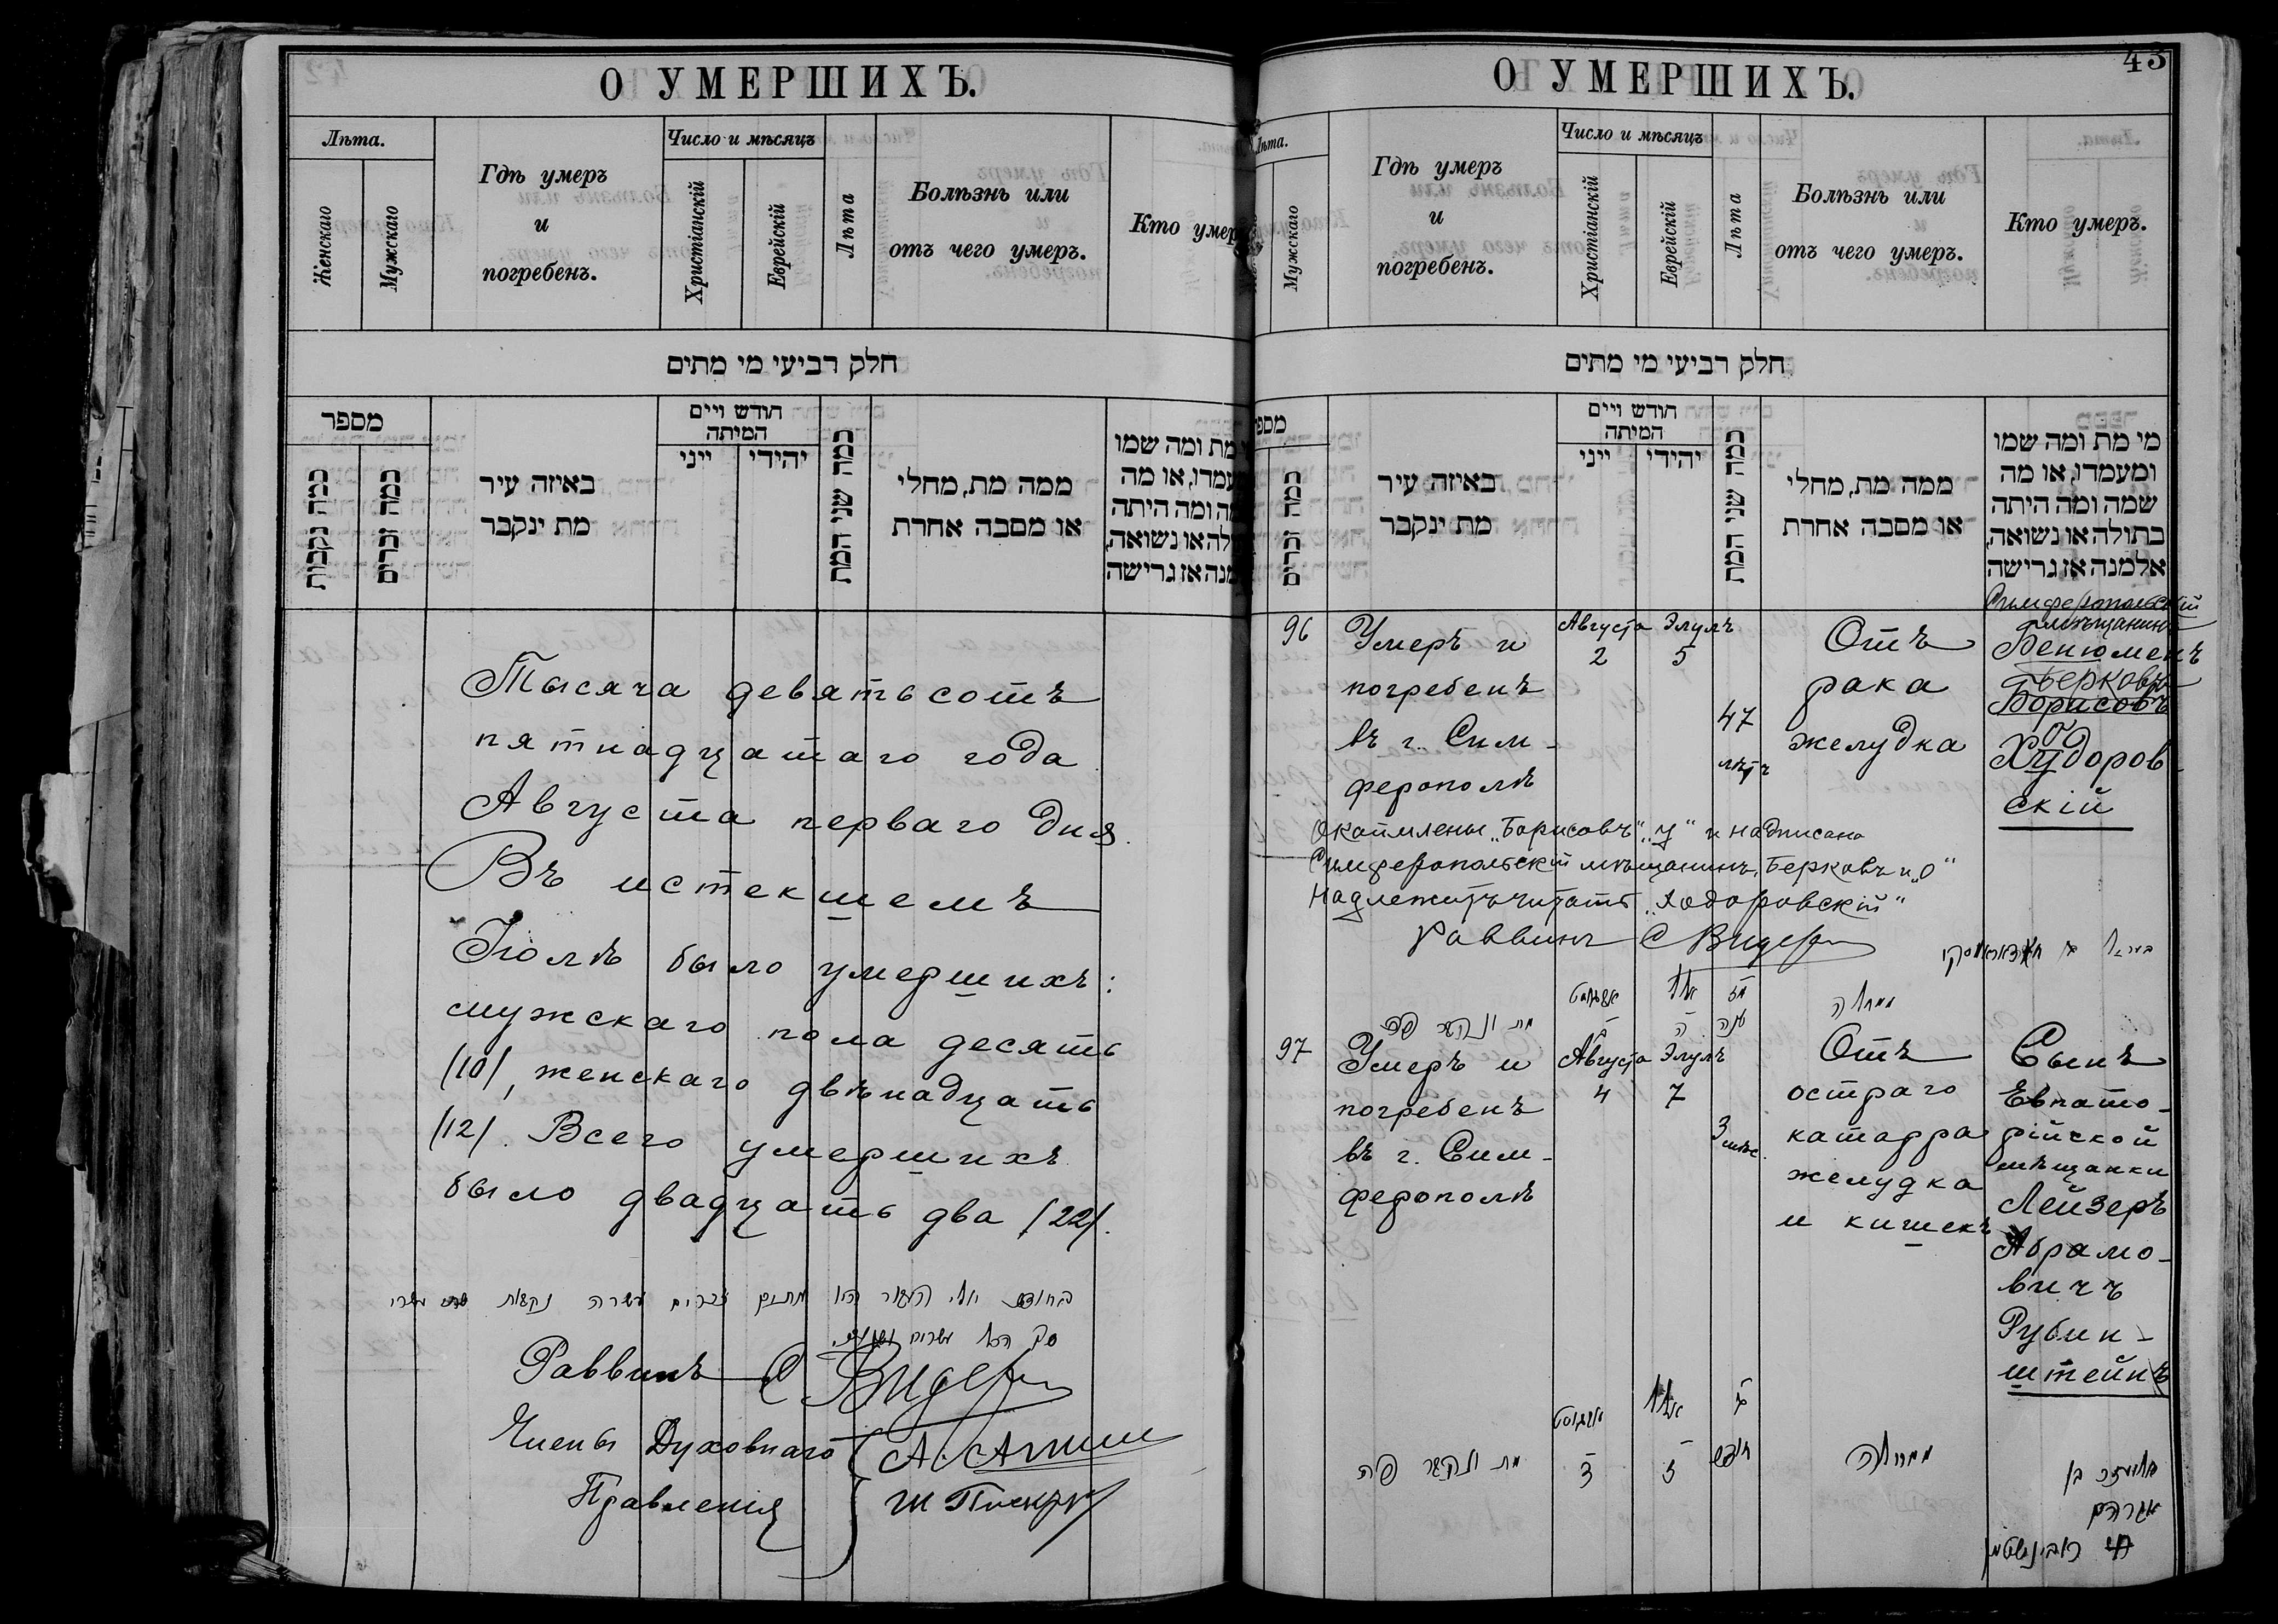 О УМЕРШИХЪ.
Лѣта.
Женскаго
Мужскаго
Гдѣ умеръ
и
погребенъ.
Число и мѣсяцъ
Христіанскій
Еврейскій
Лѣта
Болѣзнь или
отъ чего умеръ.
Кто умер
חלק רביעי מי מתים
מספר
כמה נקבות
כמה זכרים
באיזה עיר
מת ינקבר
חודש ויים
המיתה
ייני
יהידי
כמה שני המת
ממה מת, מחלי
או מסבה אחרת
מת ומה שמו
עמדו, או מה
מה ומה היתה
לה או נשואה,
מנה אז גרישה
Тысяча девятьсотъ
пятнадцатаго года
Августа перваго дня.
Въ истекшемъ
Іюлѣ было умершихъ:
мужскаго пола десять
/10/, женскаго двѣнадцать
/12/. Всего умершихъ
было двадцать два /22/.
Раввинъ С Видер
Члены Духовнаго
Правленія
43
О УМЕРШИХЪ.
Лѣта.
Мужскаго
Гдѣ умеръ
и
погребенъ.
Число и мѣсяцъ
Христіанскій
Еврейскій
Лѣта
Болѣзнь или
отъ чего умеръ.
Кто умеръ.
חלק רביעי מי מתים
מספ
כמה זכרים
באיזה עיר
מת ינקבר
חודש ויים
המיתה
ייני
יהידי
כמה שני המת
ממה מת, מחלי
או מסבה אחרת
מי מת ומה שמו
ומעמדו, או מה
שמה ומה היתה
בתולה או נשואה,
אלמנה אז גרישה
96
Умеръ и
погребенъ
въ г. Сим-
ферополѣ
Августа
2
Элулъ
5
47
лѣтъ
Отъ
рака
желудка
Симферопольскій
мѣщанинъ
Бенюменъ
Берковъ
Борисовъ
о
Худоров-
скій
Окаймлены „Борисовъ“ „у“ и надписано
Симферопольскій мѣщанинъ, Берковъ и „о“
Надлежитъ читать „Ходоровскій“
Раввинъ С Видер
אויגוסט
ב
אלול
ה
מז
שנה
מת ונקבר פה
97
Умеръ и
погребенъ
въ г. Сим-
ферополѣ
Августа
4
Элулъ
7
3
мѣс.
Отъ
остраго
катарра
желудка
и кишекъ
Сынъ
Евпато-
рійской
мѣщанки
Лейзеръ
Абрамо-
вичъ
Рубин-
штейнъ
מת ונקבר פה
אויגוסט
ד
אלול
ז
ג
חודש
אליעזר בן
אברהם
רובינשטיין